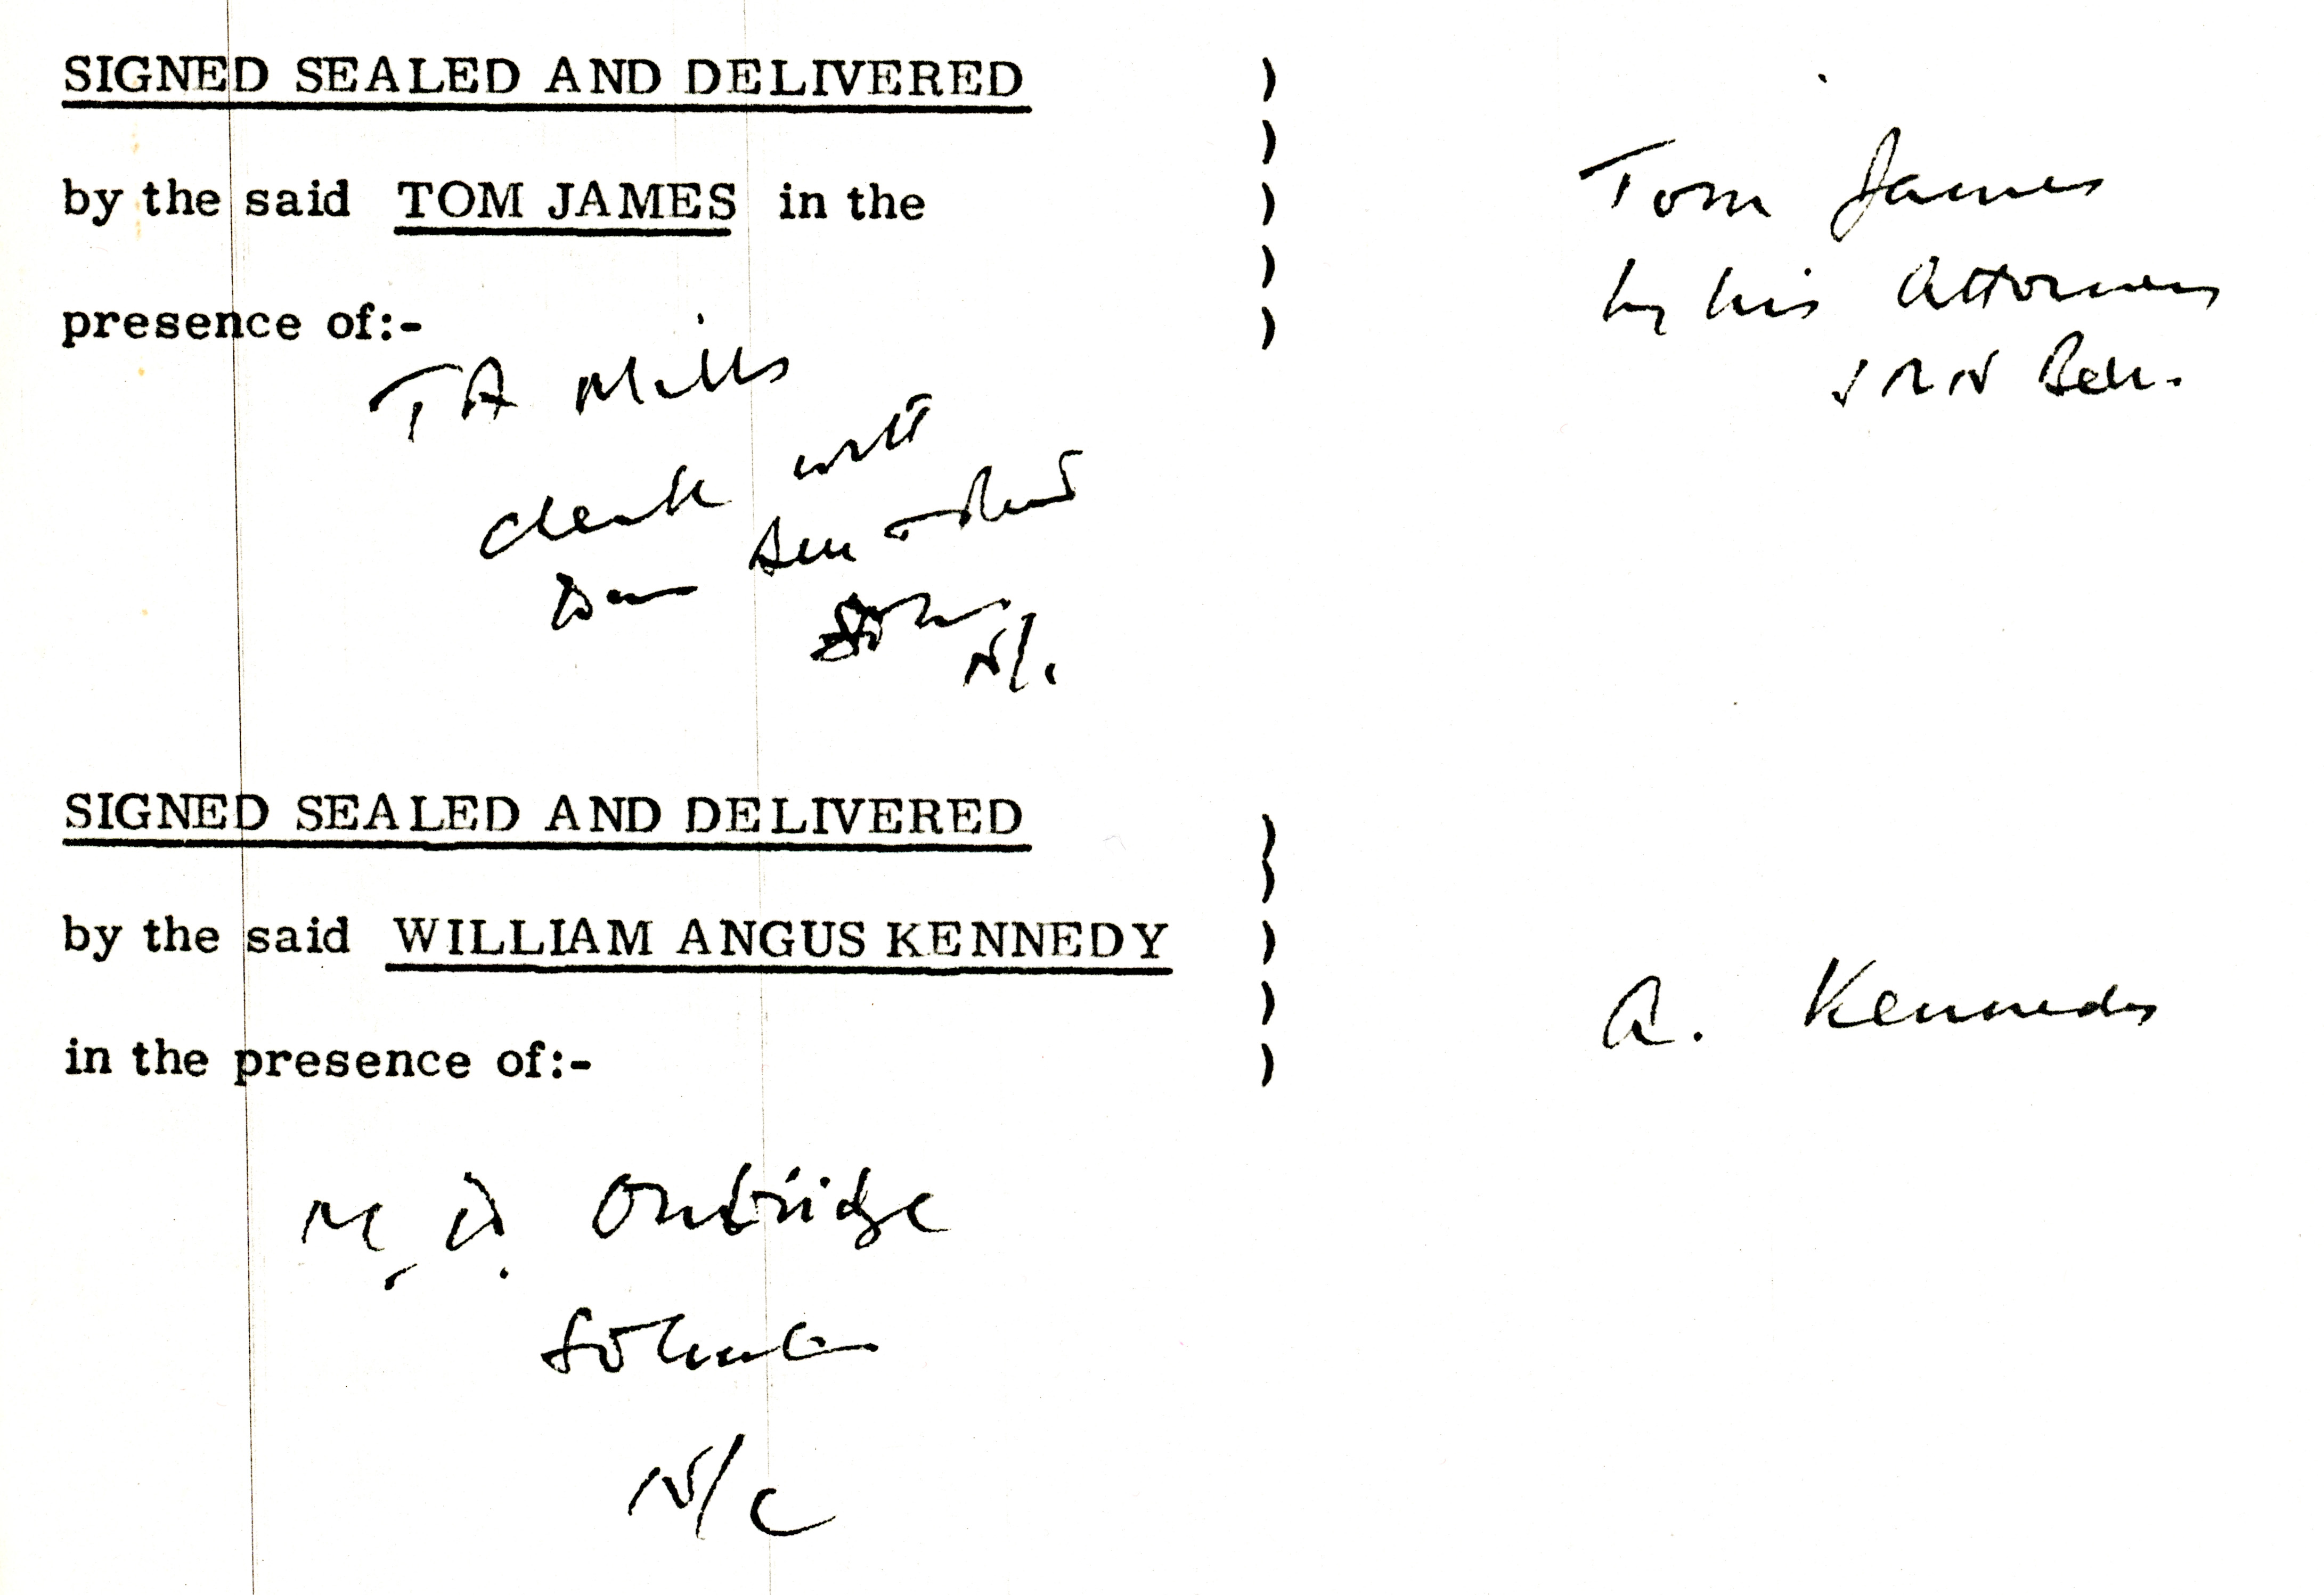 SIGNED SEALED AND DELIVERED )
)
by the said TOM JAMES in the )
)
presence of:- )
Tom James
by his Attorney
T A Mills
Clerk with
N/C
SIGNED SEALED AND DELIVERED )
)
by the said WILLIAM ANGUS KENNEDY )
)
in the presence of:- )
A. Kennedy
M. D. Oubridge
Solicitor
N/C